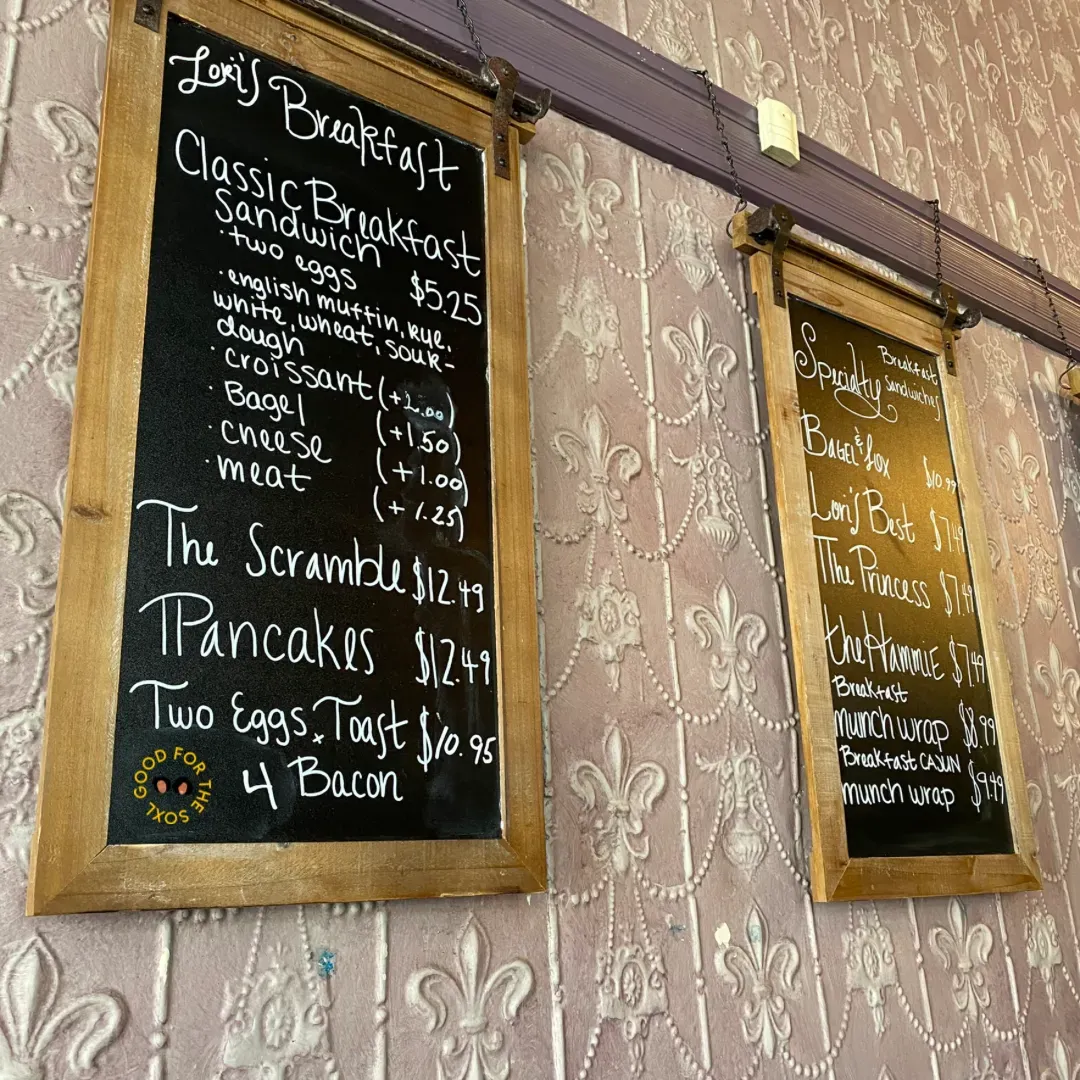 Lori's Breakfast
Classic Breakfast
Sandwich
· two eggs $5.25
· english muffin, rye,
white, wheat, sour-
dough
· croissant (+2.00)
· Bagel (+1.50)
· cheese (+1.00)
· meat (+1.25)
The Scramble $12.49
Pancakes $12.49
Two Eggs, Toast $10.95
4 Bacon
GOOD FOR THE SOXL
Specialty Breakfast
Sandwiches
Bagel & Lox $10.99
Lori's Best $7.49
The Princess $7.49
the Hammie $7.49
Breakfast
munch wrap $8.99
Breakfast CAJUN
munch wrap $9.49